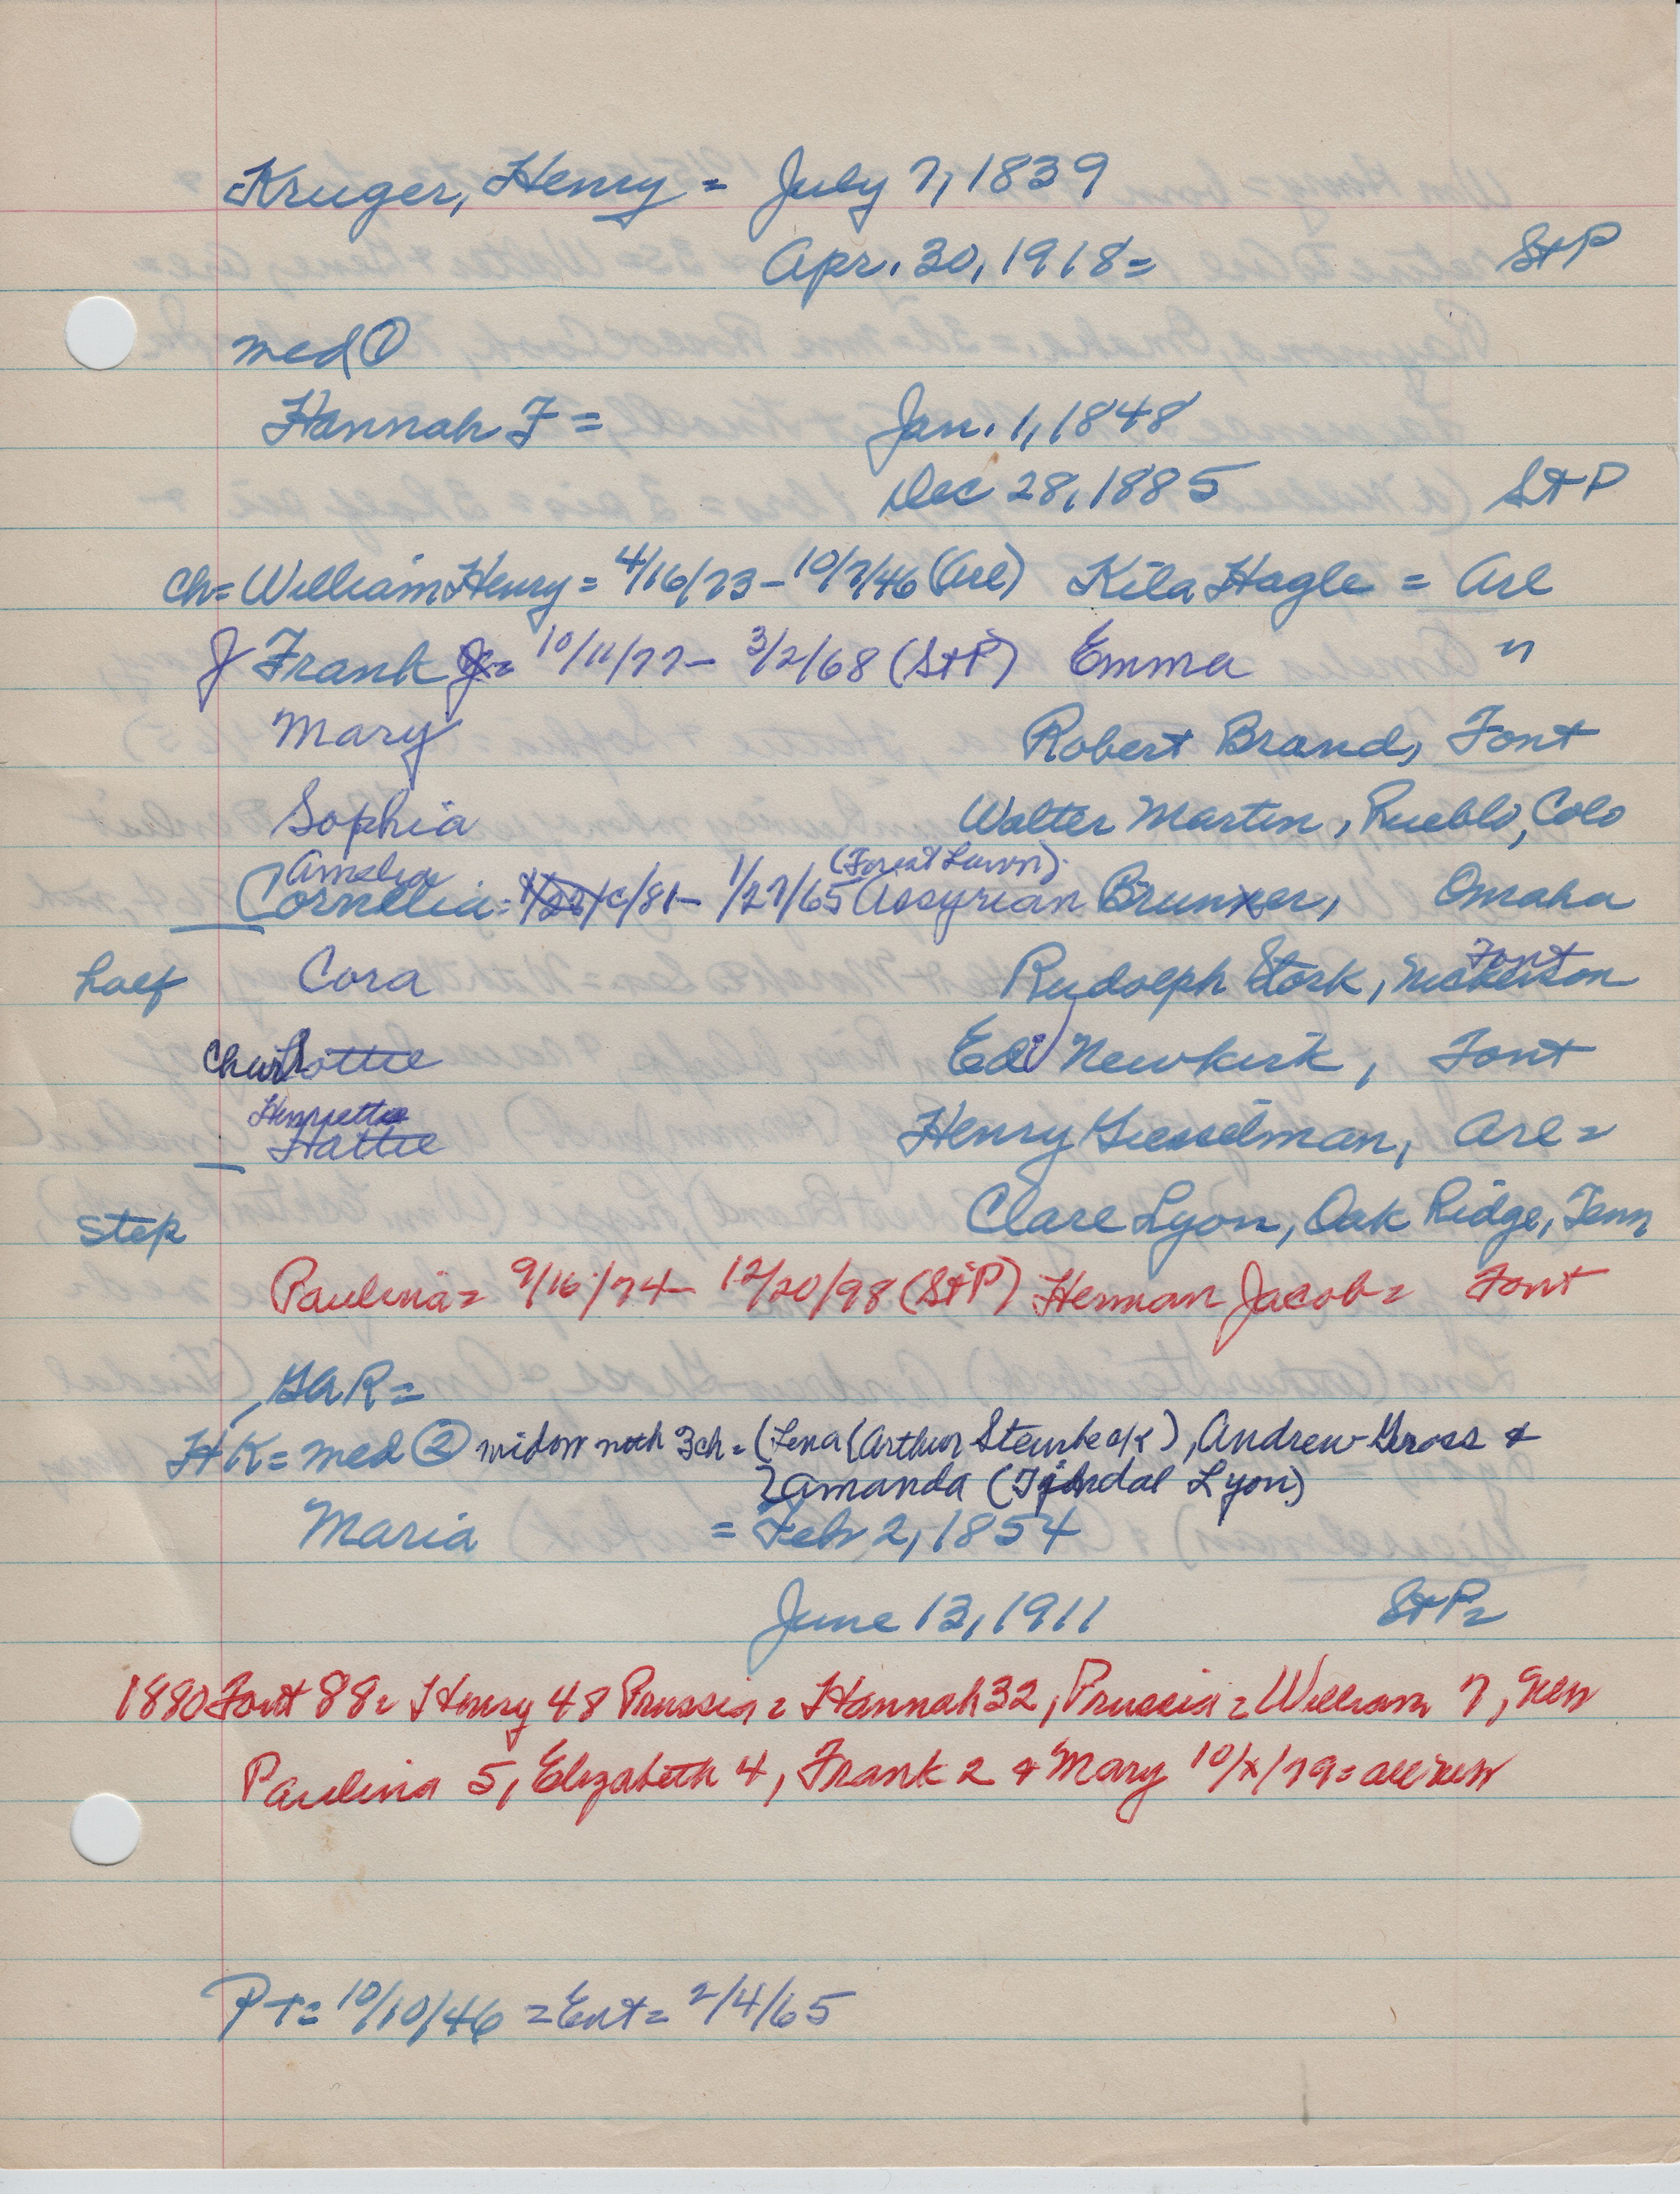 Kruger, Henry = July 7, 1839
Apr. 30, 1918 = St P
med ①
Hannah F = Jan. 1, 1848
Dec 28, 1885 St P
Ch = William Henry = 4/16/73 - 10/7/46 (Arl) Kila Hagle = Arl
J Frank J = 10/11/77 - 3/2/68 (St P) Emma "
Mary Robert Brand, Font
Sophia Walter Martin, Pueblo, Colo
Amelia (Forest Lawn)
Cornelia = /81 - 1/27/65 Assyrian Brunner, Omaha
Font
half Cora Rudolph Stork, Nickerson
Charlottie Ed Newkirk, Font
Henrietta
Hattie Henry Giesselman, Arl =
Clare Lyon, Oak Ridge, Tenn
step
Paulina = 9/16/74 - 12/20/98 (St P) Herman Jacob = Font
GAR =
HK = med ② widow with 3 ch = (Lena (Arthur Steinbeck), Andrew Gross &
Amanda (Lyon)
Maria = Feb 2, 1854
June 13, 1911 St P =
1880 Font 88 = Henry 48 Prussia = Hannah 32, Prussia = William 7,
Paulina 5, Elizabeth 4, Frank 2 & Mary 10/x/79 = all
PT = 10/10/46 = Ent = 2/4/65